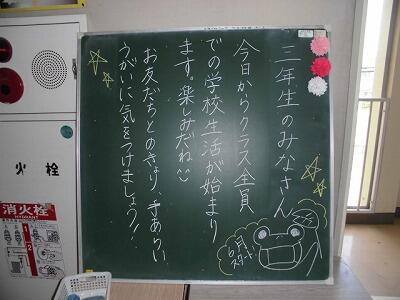 三年生のみなさん
今日からクラス全員
での学校生活が始まり
ます。楽しみだね
お友だちとのきょり、手あらい
うがいに気をつけましょう!
6月
スタート
火栓
消火栓
HYDRANT